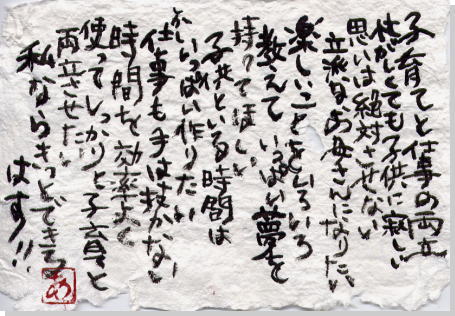 子育てと仕事の両立
忙がしくても子供に寂しい
思いは絶対させない
立派なお母さんになりたい
楽しいことをいろいろ
教えて いっぱい夢を
持ってほしい
子供といる時間は
いっぱい作りたい
仕事も手は抜かない
時間を効率よく
使ってしっかりと子育てと
両立させたい
私ならきっとできる
はず!!